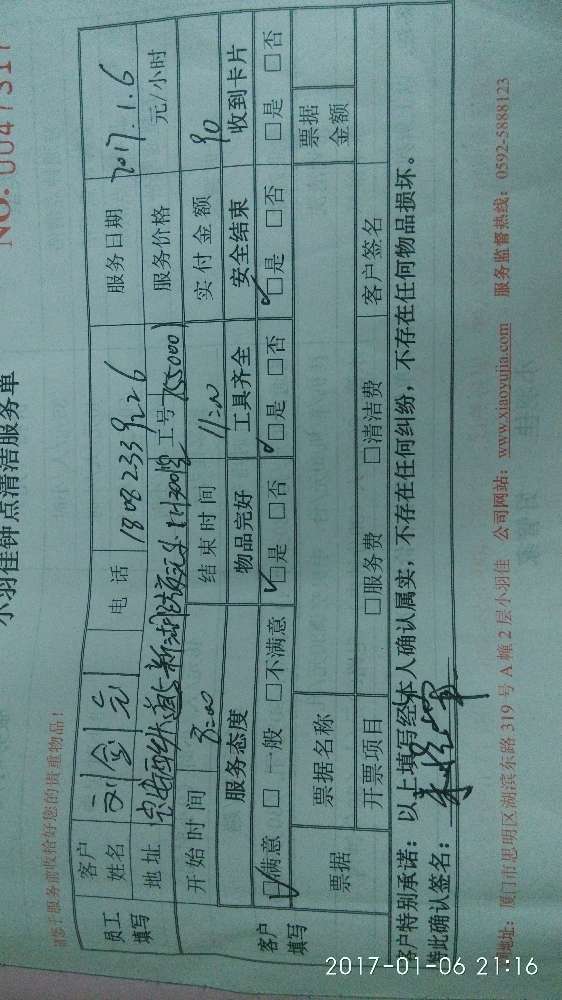 NO. 0047317
小羽佳钟点清洁服务单
请您于服务前收拾好您的贵重物品!
员工填写
客户姓名 刘剑 电话 18082339226 服务日期 2017.1.6
地址 工号 服务价格 元/小时
开始时间 8:00 结束时间 11:00 实付金额 90
客户填写
服务态度 物品完好 工具齐全 安全结束 收到卡片
☑满意 □一般 □不满意 ☑是 □否 ☑是 □否 ☑是 □否 □是 □否
票据 票据名称 票据金额
开票项目 □服务费 □清洁费 客户签名
客户特别承诺:以上填写经本人确认属实,不存在任何纠纷,不存在任何物品损坏。
特此确认签名:
地址:厦门市思明区湖滨东路319号A幢2层小羽佳 公司网站:www.xiaoyujia.com 服务监督热线:0592-5888123
2017-01-06 21:16